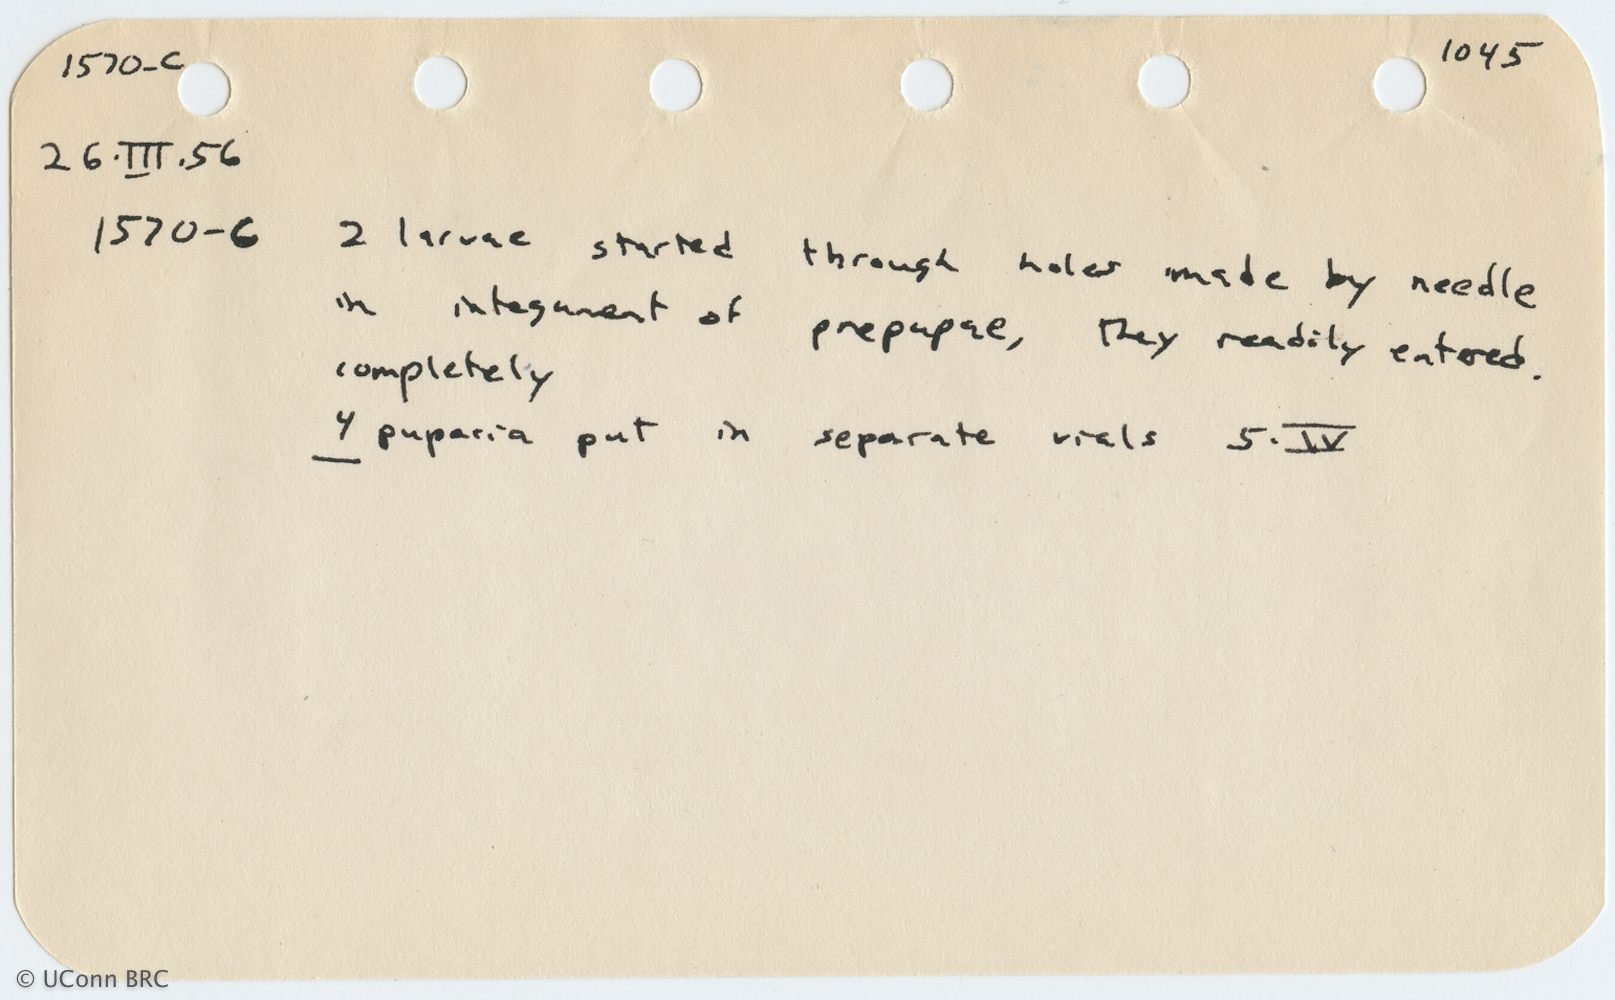 1570-C 1045
26.III.56
1570-C 2 larvae started through holes made by needle
in integument of prepupae, They readily entered.
completely
4 puparia put in separate vials 5.IV
© UConn BRC